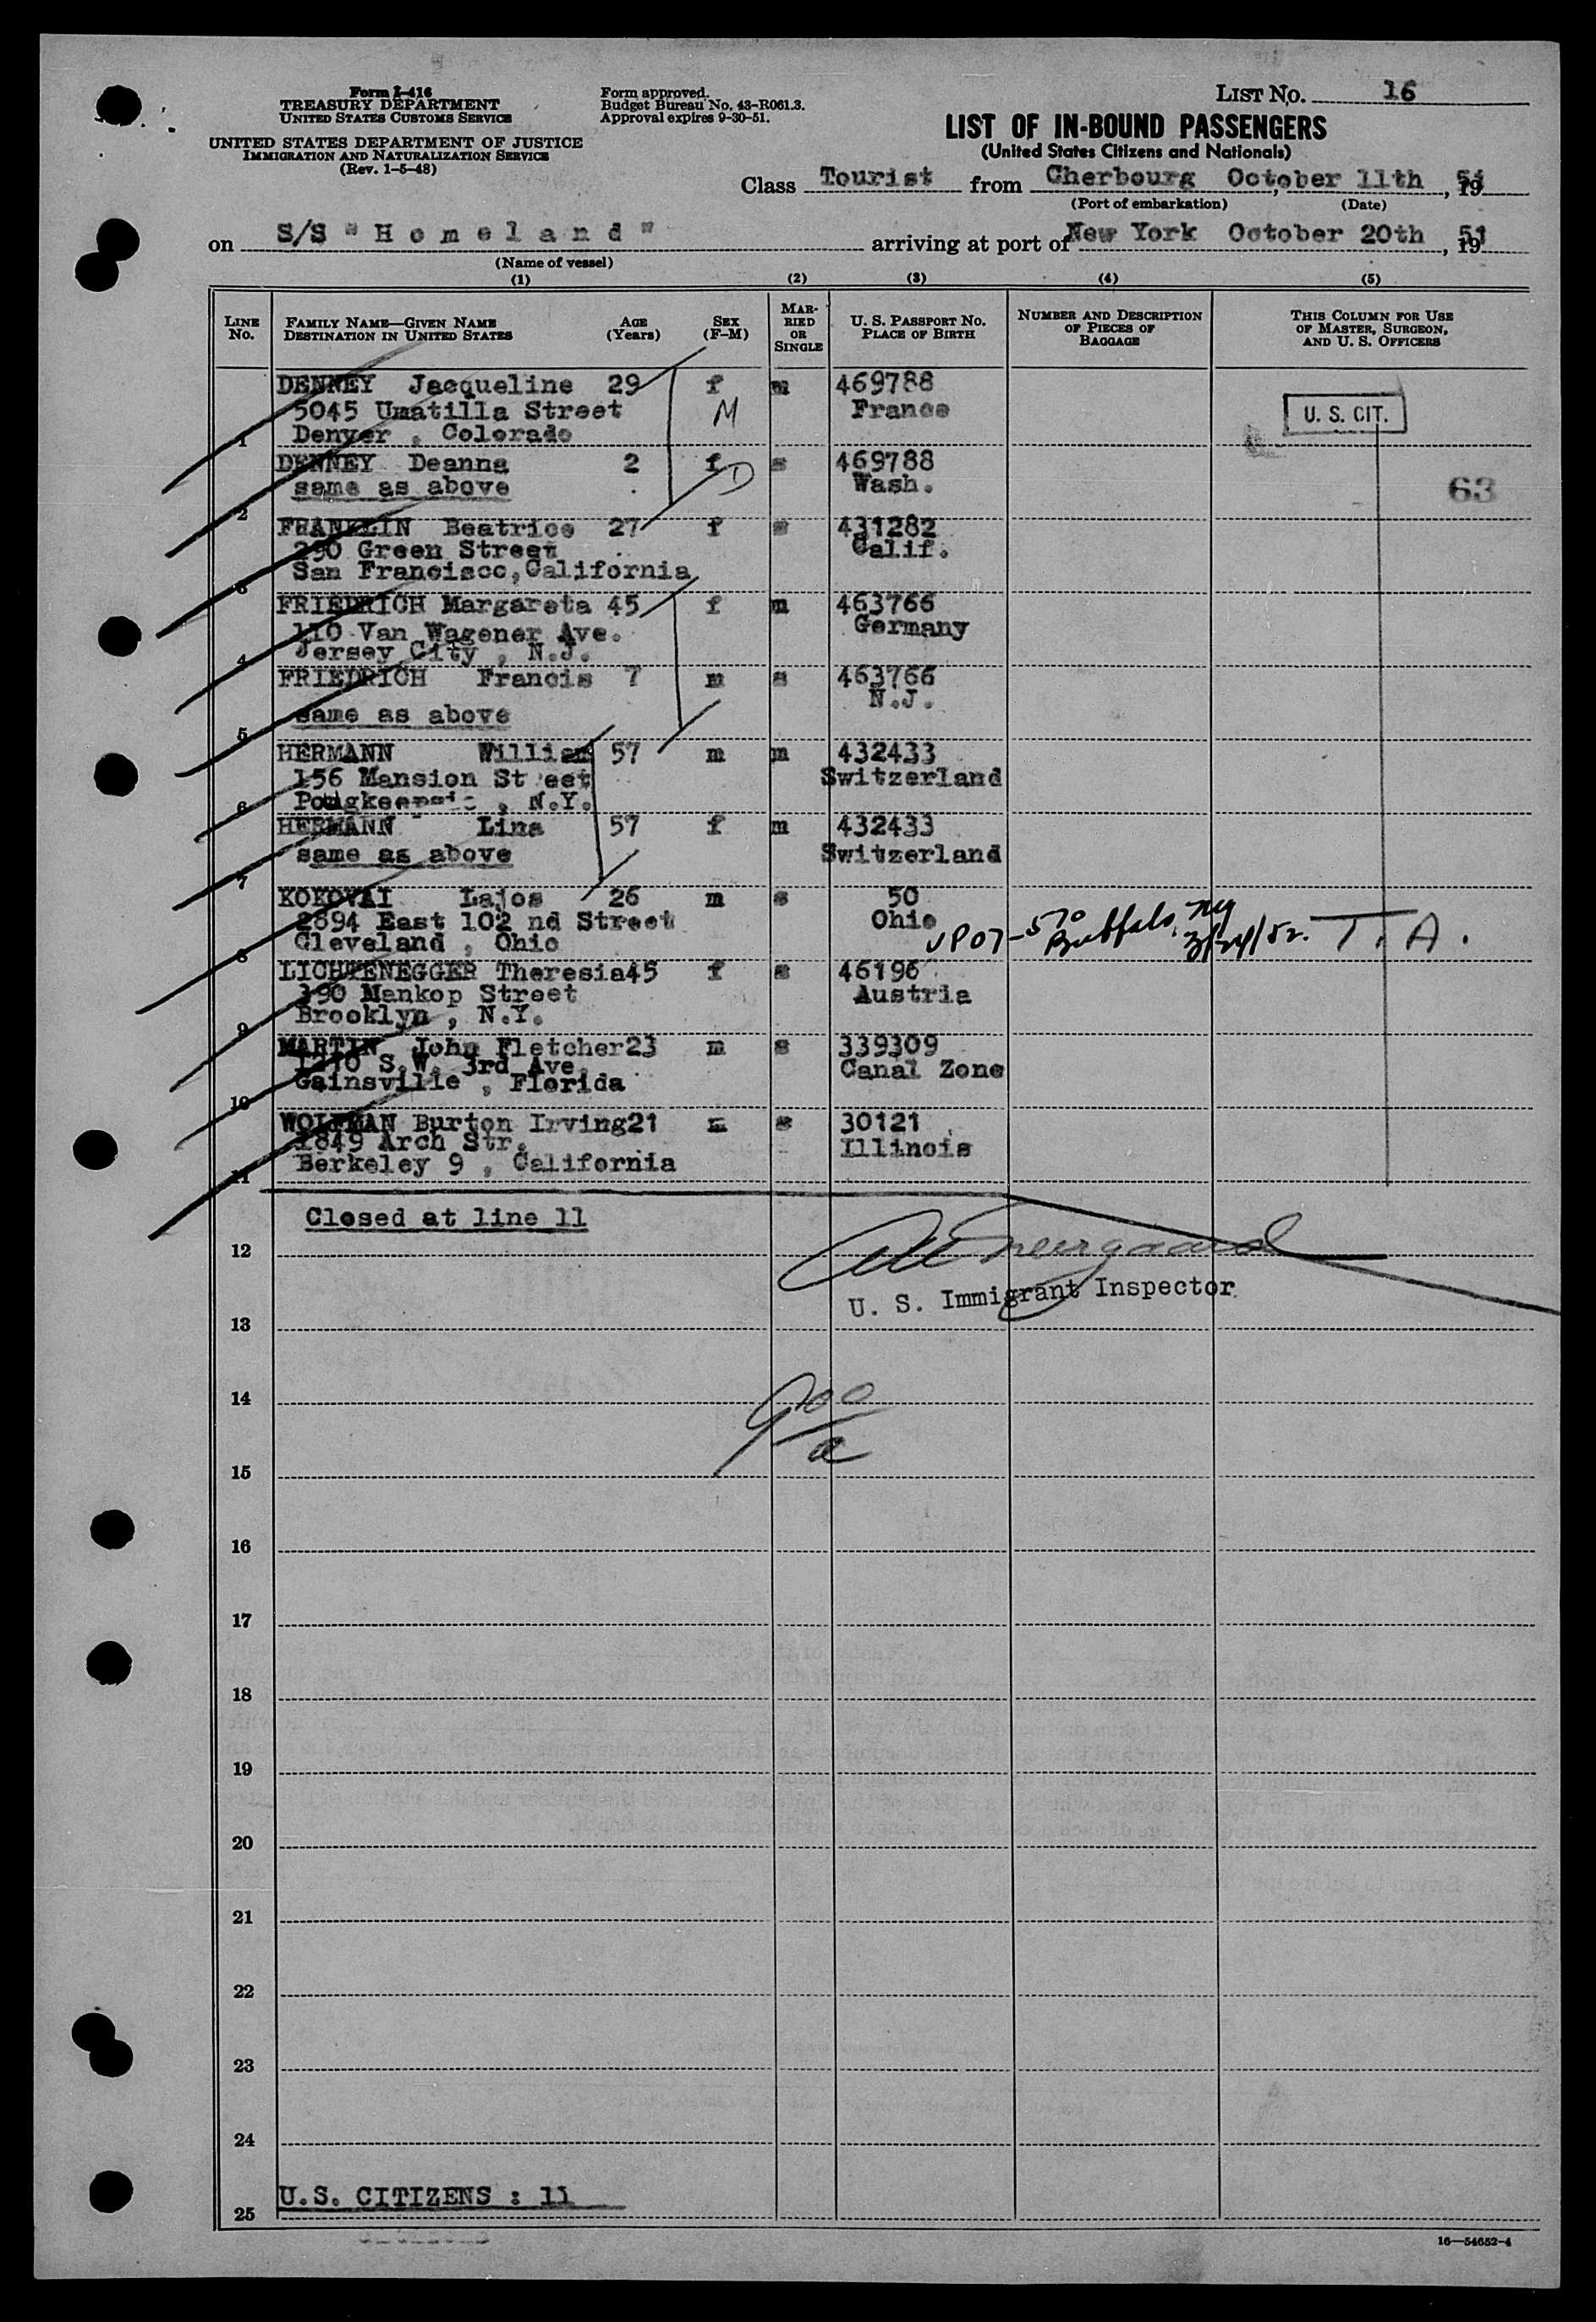 Form I-416
TREASURY DEPARTMENT
UNITED STATES CUSTOMS SERVICE
UNITED STATES DEPARTMENT OF JUSTICE
IMMIGRATION AND NATURALIZATION SERVICE
(Rev. 1-5-48)
Form approved.
Budget Bureau No. 43-R061.3.
Approval expires 9-30-51.
LIST No. 16
LIST OF IN-BOUND PASSENGERS
(United States Citizens and Nationals)
Class Tourist from Cherbourg October 11th, 1951
(Port of embarkation) (Date)
on S/S "Homeland" arriving at port of New York October 20th, 1951
(Name of vessel)
(1) (2) (3) (4) (5)
LINE No. FAMILY NAME—GIVEN NAME DESTINATION IN UNITED STATES AGE (Years) SEX (F-M) MARRIED OR SINGLE U. S. PASSPORT No. PLACE OF BIRTH NUMBER AND DESCRIPTION OF PIECES OF BAGGAGE THIS COLUMN FOR USE OF MASTER, SURGEON, AND U. S. OFFICERS
DENNEY Jacqueline 29 f m 469788
5045 Umatilla Street M France U. S. CIT.
1 Denver, Colorado
DENNEY Deanna 2 f s 469788
same as above D Wash. 63
2
FRANKLIN Beatrice 27 f s 431282
290 Green Street Calif.
3 San Francisco, California
FRIEDRICH Margareta 45 f m 463766
110 Van Wagener Ave. Germany
4 Jersey City, N.J.
FRIEDRICH Francis 7 m s 463766
N.J.
5 same as above
HERMANN William 57 m m 432433
156 Mansion Street Switzerland
6 N.Y.
HERMANN Lina 57 f m 432433
same as above Switzerland
7
KOKOVAI Lajos 26 m s 50
2894 East 102 nd Street Ohio Buffalo, NY 3/24/52. T. A.
8 Cleveland, Ohio
LICHTENEGGER Theresia 45 f s 46196
390 Mankop Street Austria
9 Brooklyn, N.Y.
MARTIN John Fletcher 23 m s 339309
1210 S.W. 3rd Ave. Canal Zone
10 Gainsville, Florida
WOLFMAN Burton Irving 21 m s 30121
1849 Arch Str. Illinois
11 Berkeley 9, California
Closed at line 11
12
U. S. Immigrant Inspector
13
14
15
16
17
18
19
20
21
22
23
24
25 U.S. CITIZENS : 11
16—54652-4